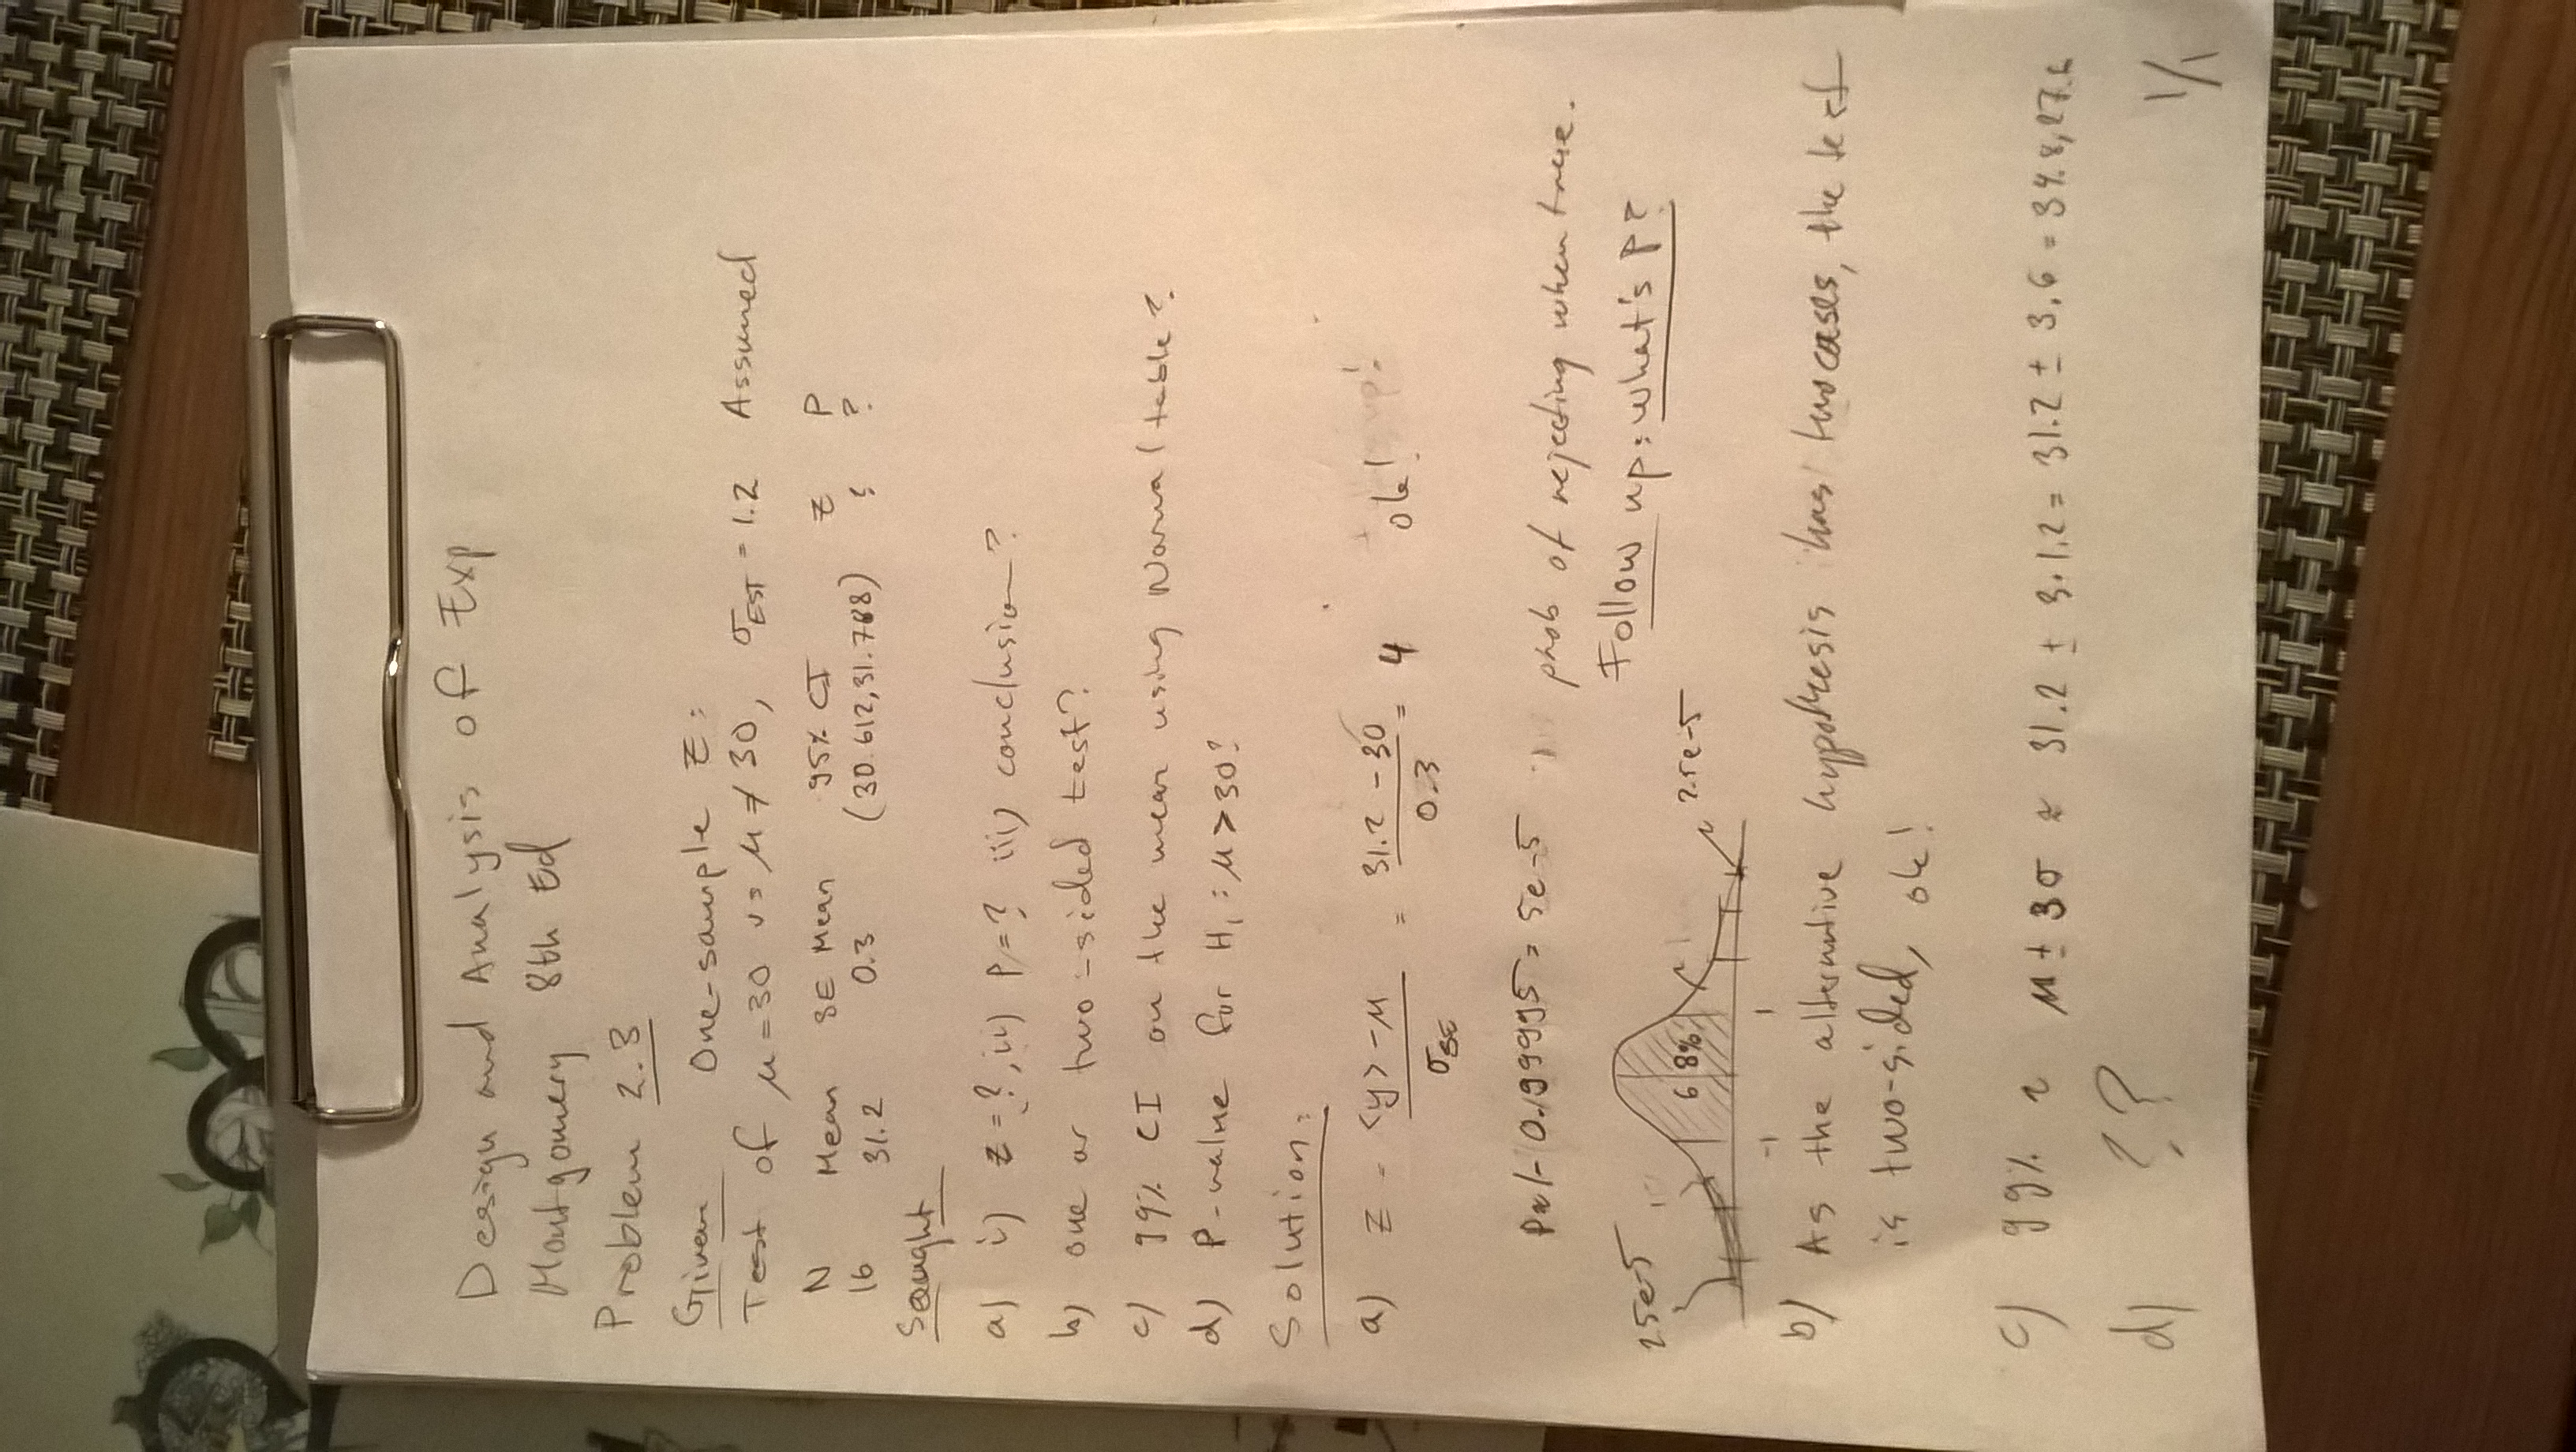 Design and Analysis of Exp
Montgomery 8th Ed
Problem 2.3
Given One-sample Z:
Test of μ = 30 vs μ ≠ 30, σEST = 1.2 Assumed
N Mean SE Mean 95% CI Z P
16 31.2 0.3 (30.612, 31.788) ? ?
Sought
a) i) Z = ?, ii) P = ? iii) conclusion?
b) one or two-sided test?
c) 99% CI on the mean using Normal table?
d) P-value for H1 : μ > 30?
Solution:
a) Z = <y> - μ / σSE = 31.2 - 30 / 0.3 = 4 ok!
P ≈ 1 - 0.99995 = 5e-5
prob of rejecting when true.
Follow up: what's P?
2.5e-5 68% 2.5e-5
-1 1
b) As the alternative hypothesis has two cases, the test
is two-sided, ok!
c) 99% ≈ μ ± 3σ ≈ 31.2 ± 3·1.2 = 31.2 ± 3.6 = 34.8, 27.6
d) ??
1/1